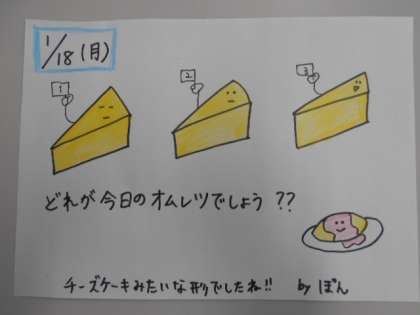 1/18(月)
1
2
3
どれが今日のオムレツでしょう??
チーズケーキみたいな形でしたね!! by ぽん